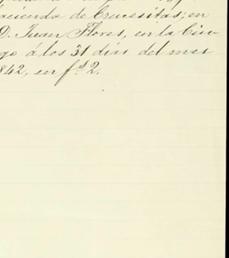 cienda de Crucesitas; en
D. Juan Flores, en la Ciu-
go á los 31 dias del mes
842, en fs 2.